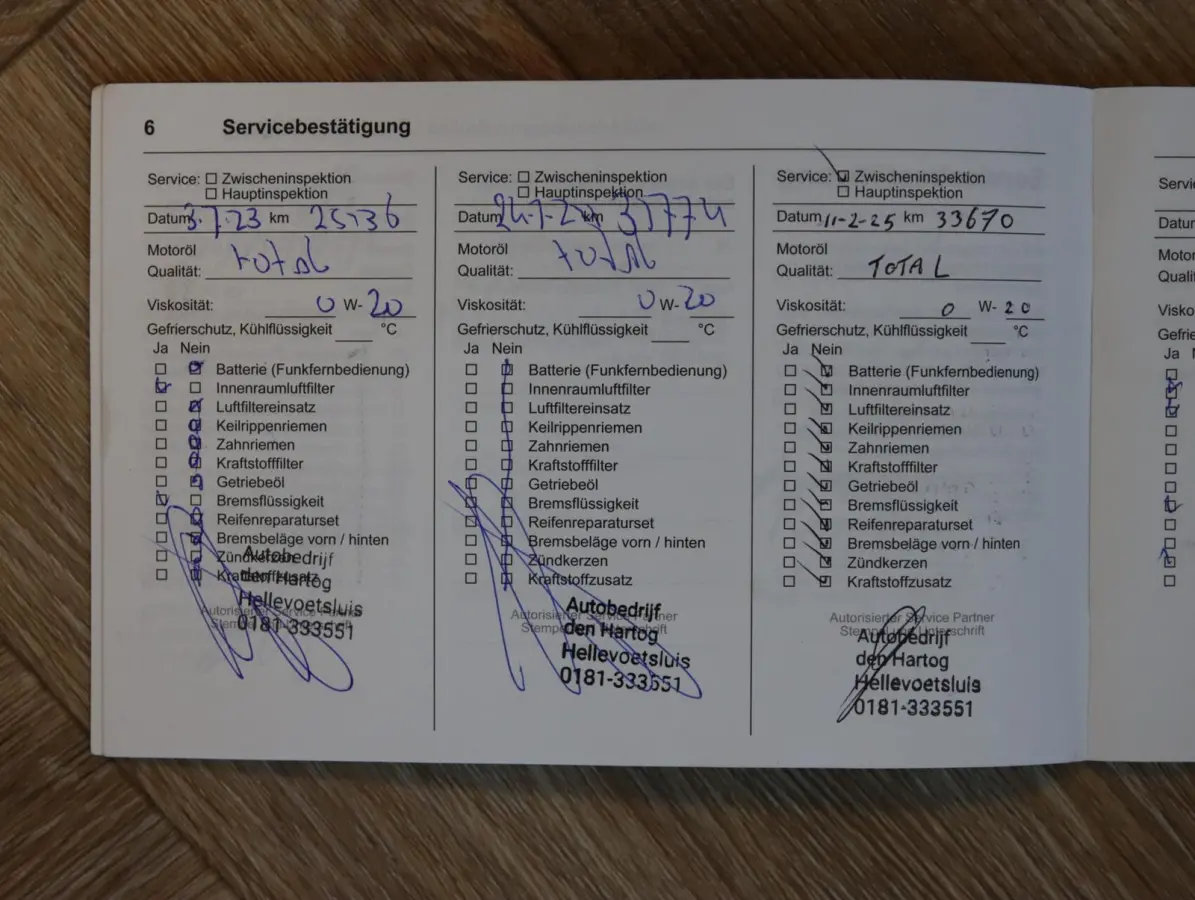 6 Servicebestätigung
Service: Zwischeninspektion
Hauptinspektion
Datum 3.7.23 km 25136
Motoröl
Qualität: total
Viskosität: 0 W- 20
Gefrierschutz, Kühlflüssigkeit °C
Ja Nein
Batterie (Funkfernbedienung)
Innenraumluftfilter
Luftfiltereinsatz
Keilrippenriemen
Zahnriemen
Kraftstofffilter
Getriebeöl
Bremsflüssigkeit
Reifenreparaturset
Bremsbeläge vorn / hinten
Zündkerzen
Kraftstoffzusatz
Autorisierter Service Partner
Stempel und Unterschrift
Autobedrijf
den Hartog
Hellevoetsluis
0181-333551
Service: Zwischeninspektion
Hauptinspektion
Datum km
Motoröl
Qualität: total
Viskosität: 0 W- 20
Gefrierschutz, Kühlflüssigkeit °C
Ja Nein
Batterie (Funkfernbedienung)
Innenraumluftfilter
Luftfiltereinsatz
Keilrippenriemen
Zahnriemen
Kraftstofffilter
Getriebeöl
Bremsflüssigkeit
Reifenreparaturset
Bremsbeläge vorn / hinten
Zündkerzen
Kraftstoffzusatz
Autorisierter Service Partner
Stempel und Unterschrift
Autobedrijf
den Hartog
Hellevoetsluis
0181-333551
Service: Zwischeninspektion
Hauptinspektion
Datum 11-2-25 km 33670
Motoröl
Qualität: TOTAL
Viskosität: 0 W- 20
Gefrierschutz, Kühlflüssigkeit °C
Ja Nein
Batterie (Funkfernbedienung)
Innenraumluftfilter
Luftfiltereinsatz
Keilrippenriemen
Zahnriemen
Kraftstofffilter
Getriebeöl
Bremsflüssigkeit
Reifenreparaturset
Bremsbeläge vorn / hinten
Zündkerzen
Kraftstoffzusatz
Autorisierter Service Partner
Stempel und Unterschrift
Autobedrijf
den Hartog
Hellevoetsluis
0181-333551
Servi
Datur
Motor
Quali
Visko
Gefrie
Ja